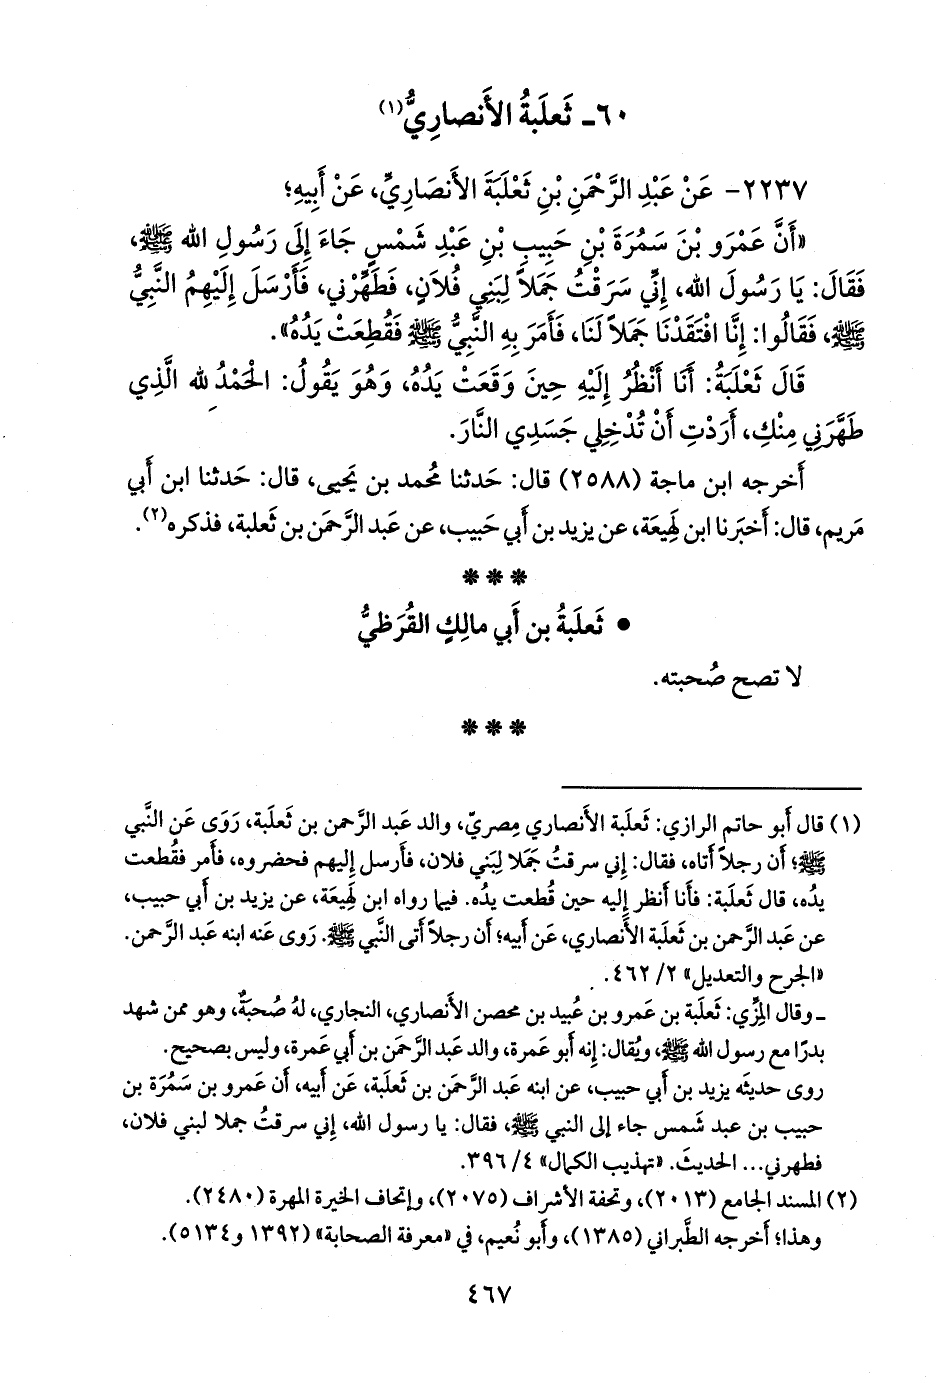 ٦٠ـ ثَعلَبةُ الأَنصاريُّ(١)
٢٢٣٧- عَنْ عَبْدِ الرَّحْمَنِ بْنِ ثَعْلَبَةَ الأَنصَارِيِّ، عَنْ أَبِيهِ؛
«أَنَّ عَمْرَو بْنَ سَمُرَةَ بْنِ حَبِيبِ بْنِ عَبْدِ شَمْسٍ جَاءَ إِلَى رَسُولِ الله ﷺ،
فَقَالَ: يَا رَسُولَ الله، إِنِّي سَرَقْتُ جَمَلاً لِبَنِي فُلاَنٍ، فَطَهِّرْنِي، فَأَرْسَلَ إِلَيْهِمُ النَّبِيُّ
ﷺ، فَقَالُوا: إِنَّا افْتَقَدْنَا جَمَلاً لَنَا، فَأَمَرَ بِهِ النَّبِيُّ ﷺ فَقُطِعَتْ يَدُهُ».
قَالَ ثَعْلَبَةُ: أَنَا أَنْظُرُ إِلَيْهِ حِينَ وَقَعَتْ يَدُهُ، وَهُوَ يَقُولُ: الحَمْدُ لله الَّذِي
طَهَّرَنِي مِنْكِ، أَرَدْتِ أَنْ تُدْخِلِي جَسَدِي النَّارَ.
أَخرجه ابن ماجة (٢٥٨٨) قال: حَدثنا مُحمد بن يَحيى، قال: حَدثنا ابن أَبي
مَريم، قال: أَخبَرنا ابن لَهِيعَة، عن يزيد بن أَبي حَبيب، عن عَبد الرَّحمَن بن ثَعلبة، فذكره(٢).
* * *
● ثَعلَبةُ بن أَبي مالِكٍ القُرَظيُّ
لا تصح صُحبته.
* * *
(١) قال أَبو حاتم الرازي: ثَعلَبة الأَنصاري مِصريّ، والد عَبد الرَّحمن بن ثَعلَبة، رَوَى عَنِ النَّبي
ﷺ؛ أَن رجلاً أَتاه، فقال: إِني سرقتُ جَمَلا لِبَني فلان، فأَرسل إِليهم فحضروه، فأَمر فقُطعت
يدُه، قال ثَعلَبة: فأَنا أَنظر إِليه حين قُطعت يدُه. فيما رواه ابن لَهِيعَة، عن يزيد بن أَبي حبيب،
عن عَبد الرَّحمن بن ثَعلَبة الأَنصاري، عَن أَبيه؛ أَن رجلاً أَتى النَّبي ﷺ. رَوى عَنه ابنه عَبد الرَّحمن.
«الجرح والتعديل» ٢/ ٤٦٢.
ـ وقال المِزِّي: ثَعلَبة بن عَمرو بن عُبيد بن محصن الأَنصاري، النجاري، لهُ صُحبَةٌ، وهو ممن شهد
بدرًا مع رسول الله ﷺ، ويُقال: إِنه أَبو عَمرة، والد عَبد الرَّحمَن بن أَبي عَمرة، وليس بصحيح.
روى حديثَه يزيد بن أَبي حبيب، عن ابنه عَبد الرَّحمَن بن ثَعلبة، عَن أَبيه، أَن عَمرو بن سَمُرَة بن
حبيب بن عبد شَمس جاء إِلى النبي ﷺ، فقال: يا رسول الله، إِني سرقتُ جملا لبني فلان،
فطهرني... الحديثَ. «تهذيب الكمال» ٤/ ٣٩٦.
(٢) المسند الجامع (٢٠١٣)، وتحفة الأشراف (٢٠٧٥)، وإتحاف الخيرة المهرة (٢٤٨٠).
وهذا؛ أَخرجه الطَّبراني (١٣٨٥)، وأَبو نُعيم، في «معرفة الصحابة» (١٣٩٢ و٥١٣٤).
٤٦٧